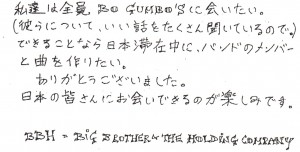 私達は全員 BO GUMBO'Sに会いたい。
(彼らについて、いい話をたくさん聞いているので。)
できることなら日本滞在中に、バンドのメンバー
と曲を作りたい。
ありがとうございました。
日本の皆さんにお会いできるのが楽しみです。
BBH = BIG BROTHER & THE HOLDING COMPANY